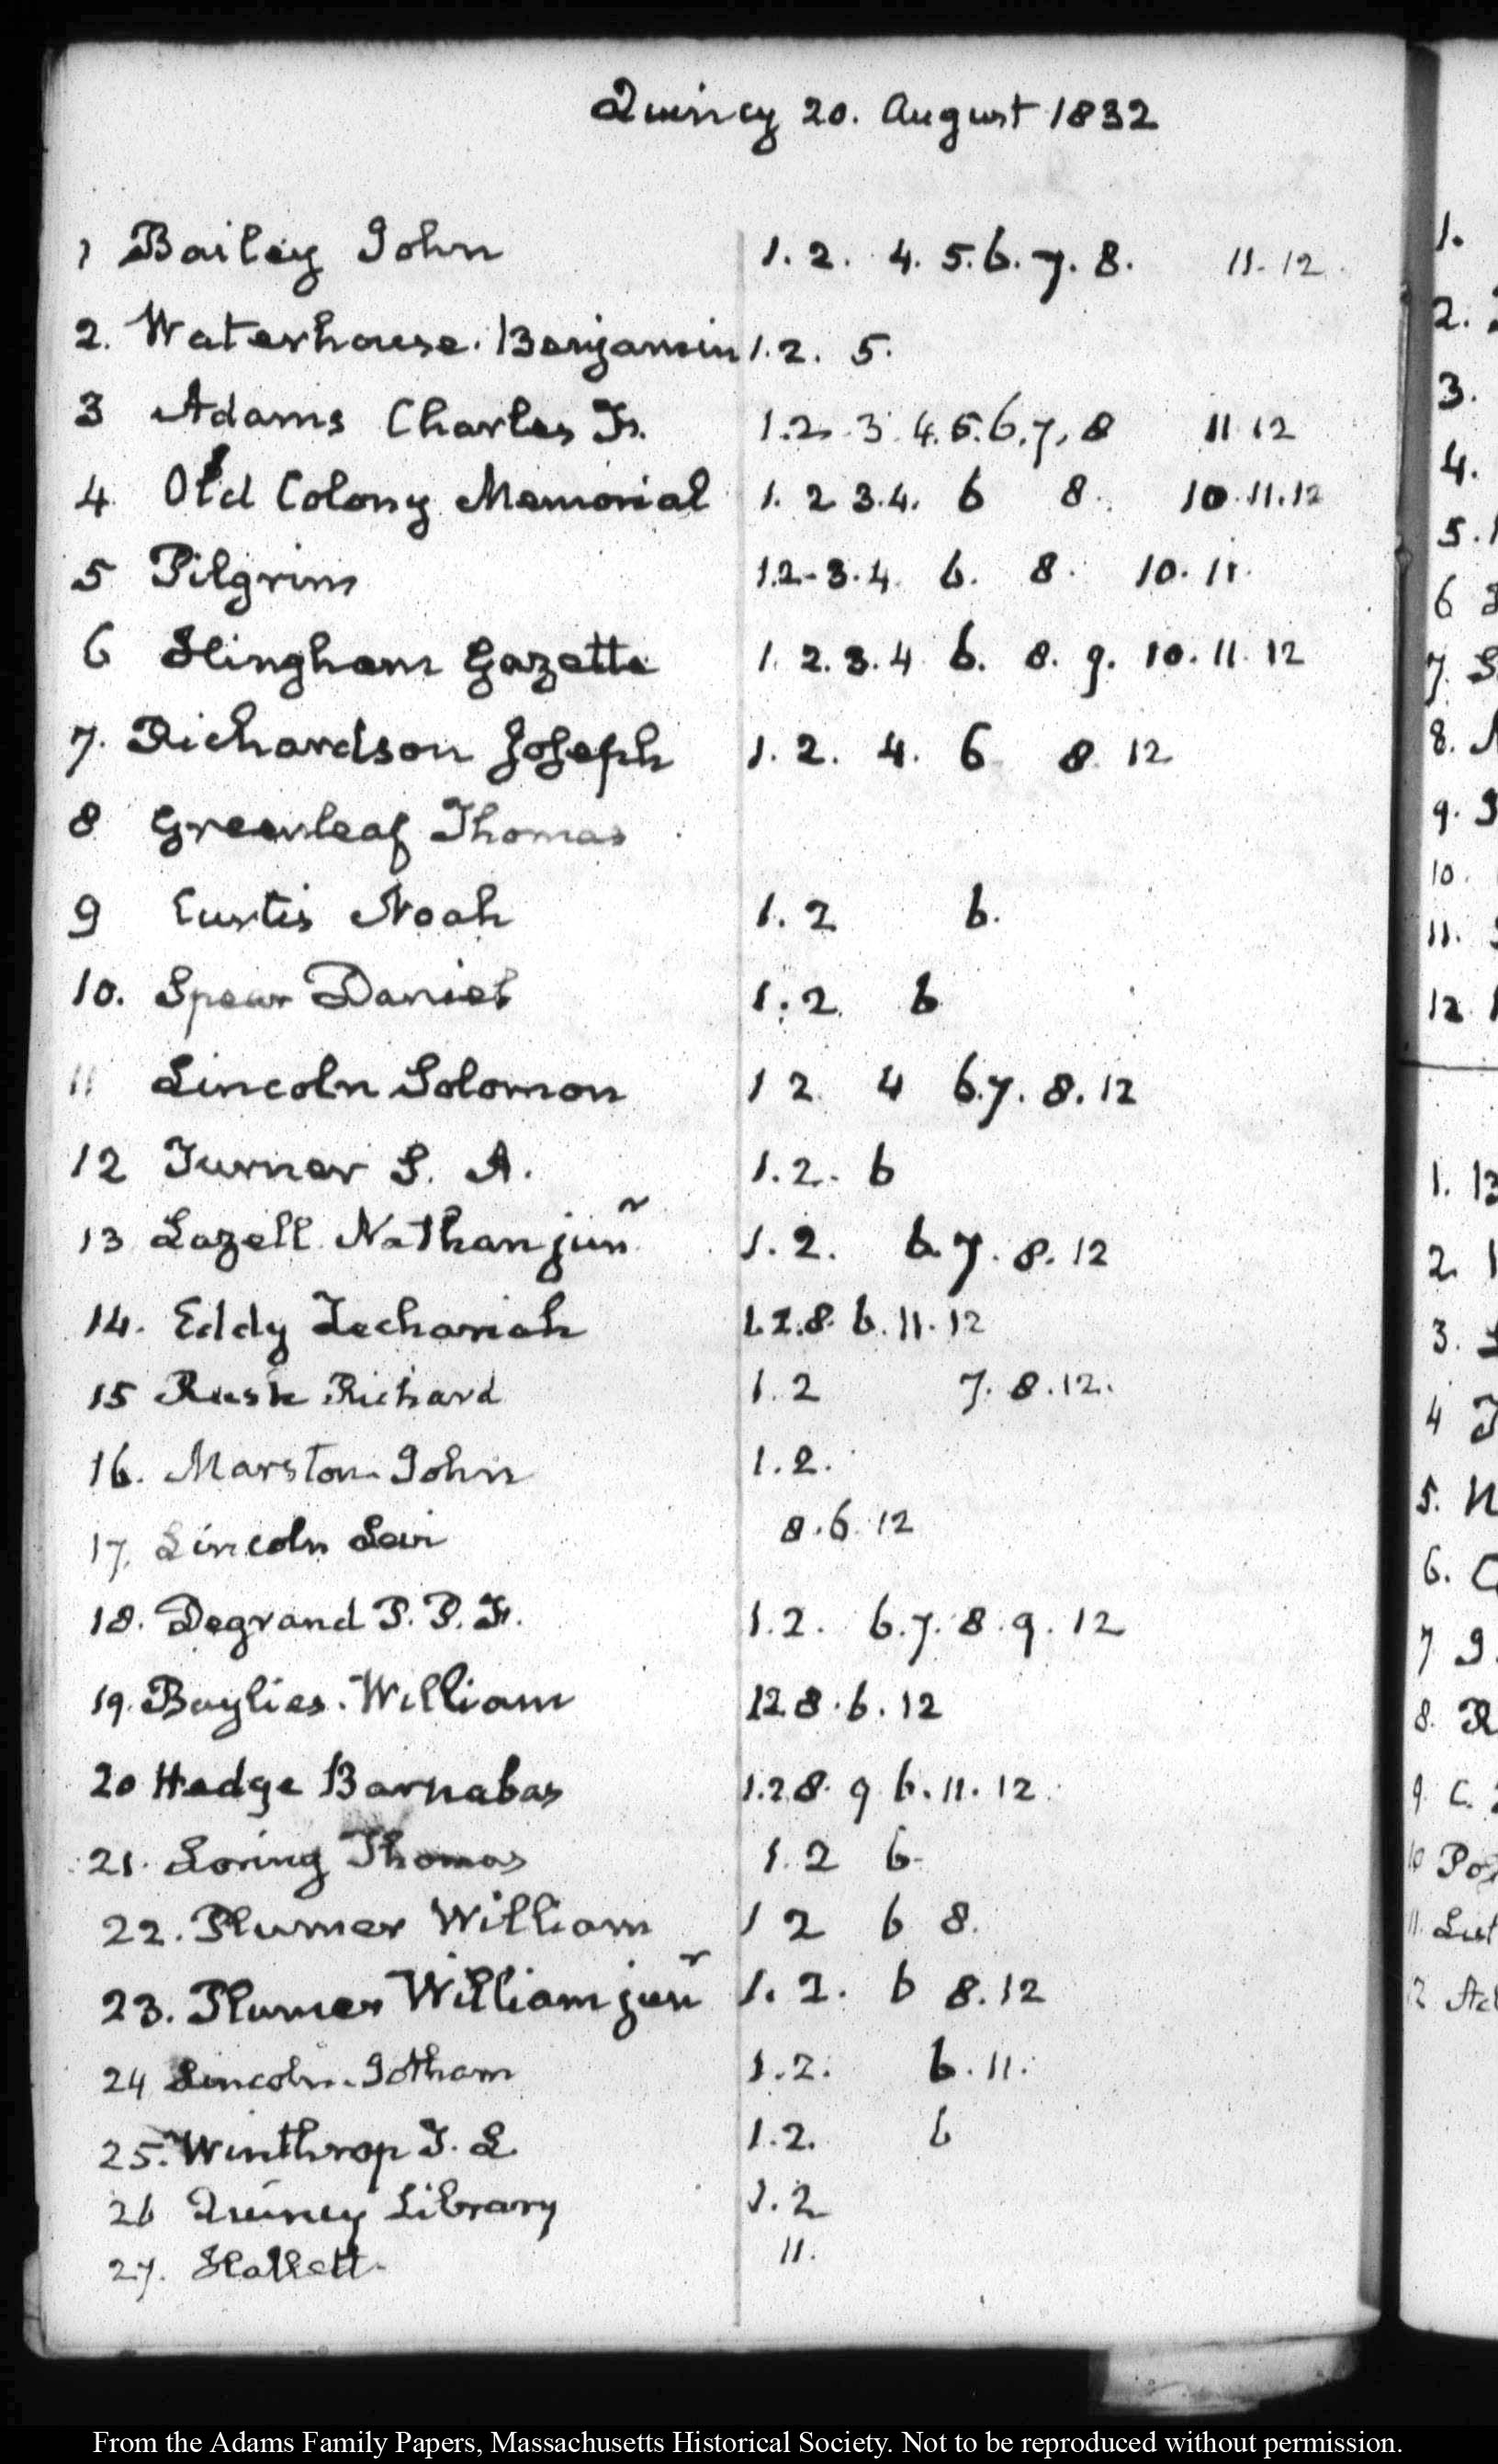 Quincy 20. August 1832
1 Bailey John 1. 2. 4. 5. 6. 7. 8. 11. 12.
2. Waterhouse. Benjamin 1. 2. 5.
3 Adams Charles Fr. 1. 2. 3. 4. 5. 6. 7. 8 11 12
4 Old Colony Memorial 1. 2 3. 4. 6 8. 10. 11. 12
5 Pilgrim 1. 2. 3. 4. 6. 8. 10. 11.
6 Hingham Gazette 1. 2. 3. 4 6. 8. 9. 10. 11. 12
7. Richardson Joseph 1. 2. 4. 6 8. 12
8 Greenleaf Thomas
9 Curtis Noah 1. 2 6.
10. Spear Daniel 1. 2. 6
11 Lincoln Solomon 1 2. 4 6. 7. 8. 12
12 Turner S. A. 1. 2. 6
13 Lazell Nathan junr 1. 2. 6. 7. 8. 12
14. Eddy Zechariah 1. 2. 8. 6. 11. 12
15 Rush Richard 1. 2 7. 8. 12.
16. Marston John 1. 2.
17. Lincoln Levi 8. 6. 12
18. Degrand P. P. F. 1. 2. 6. 7. 8. 9. 12
19. Baylies. William 12. 8. 6. 12
20 Hedge Barnabas 1. 2 8. 9 6. 11. 12.
21. Loring Thomas 1. 2 6
22. Plumer William 1 2 6 8.
23. Plumer William junr 1. 2. 6 8. 12
24 Lincoln. Jotham 1. 2. 6. 11.
25. Winthrop T. L. 1. 2. 6
26 Quincy Library 1. 2
27. Hallett 11.
1.
2.
3.
4.
5.
6
7.
8.
9.
10.
11.
12
1.
2
3.
4
5.
6.
7
8.
9 C.
10
11
From the Adams Family Papers, Massachusetts Historical Society. Not to be reproduced without permission.